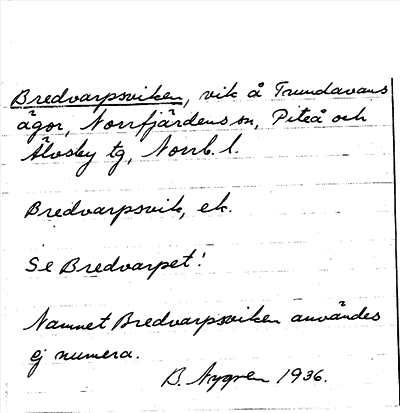 Bredvarpsviken, vik å Trundavans
ägor, Norrfjärdens sn, Piteå och
Älvsby tg, Norrb. l.
Bredvarpsvik, ek.
Se Bredvarpet!
Namnet Bredvarpsviken användes
ej numera.
B. Nygren 1936.